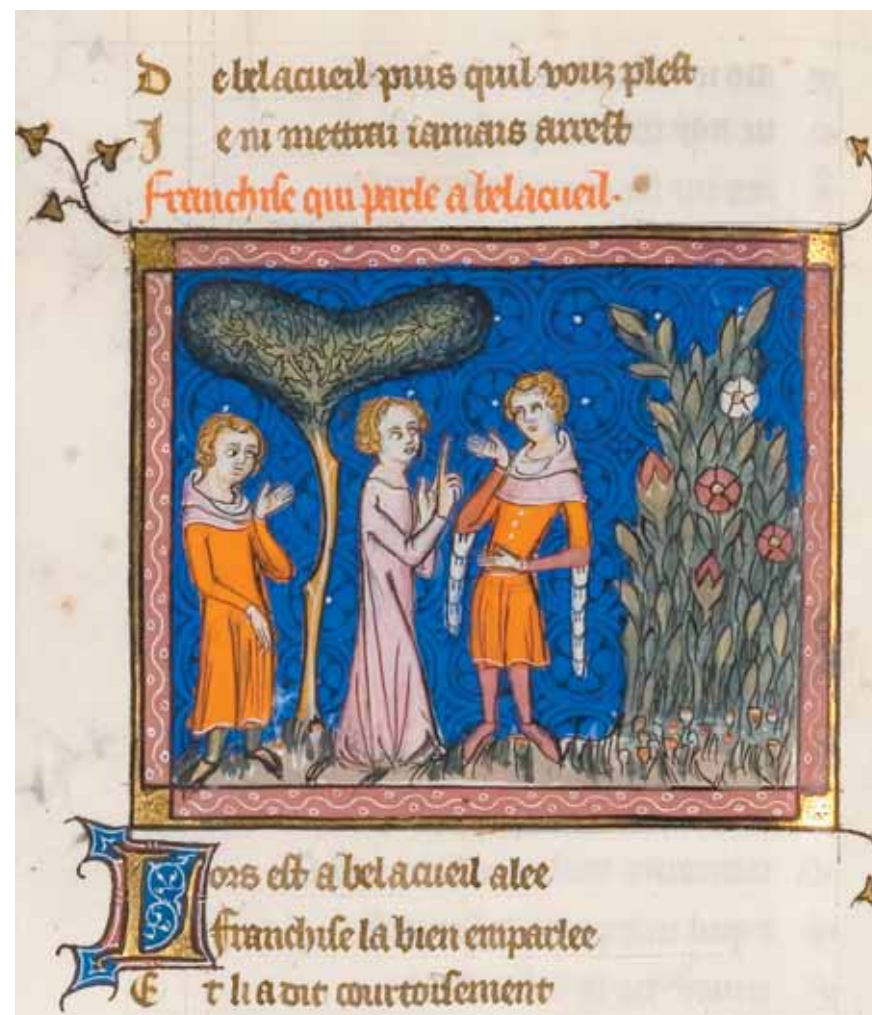 D e bel acueil puis quil vouz plest
J e ni mettrai iamais arrest
Franchise qui parle a bel acueil.
Lors est a bel acueil alee
Franchise la bien emparlee
E t li a dit courtoisement